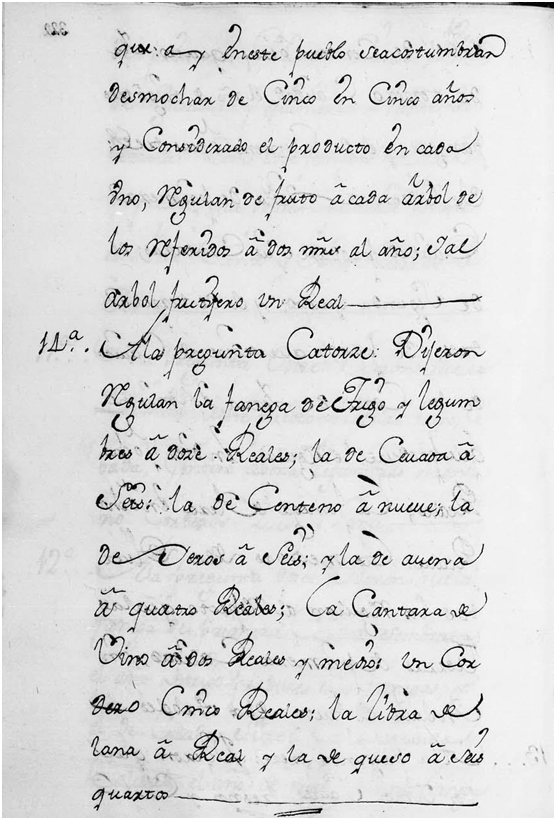 que ay eneste pueblo seacostumbran
desmochar de Cinco en Cinco años
y Considerado el producto en cada
Uno, Regulan de fruto â cada ârbol de
los Referidos â dos mrs al año; Y al
ârbol fructifero un Real
14ª. A la pregunta Catorze: Dijeron
Regulan la fanega de Trigo y legum
bres â doze Reales; la de Cevada â
Seis: la de Centeno â nueve; la
de Yeros â Seis; y la de avena
â quatro Reales; la Cantara de
Vino â dos Reales y medio: un Cor
dero Cinco Reales: la libra de
lana â Real y la de queso â seis
quartos